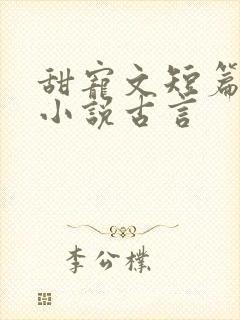 甜寵文短篇
小說古言
李公樸